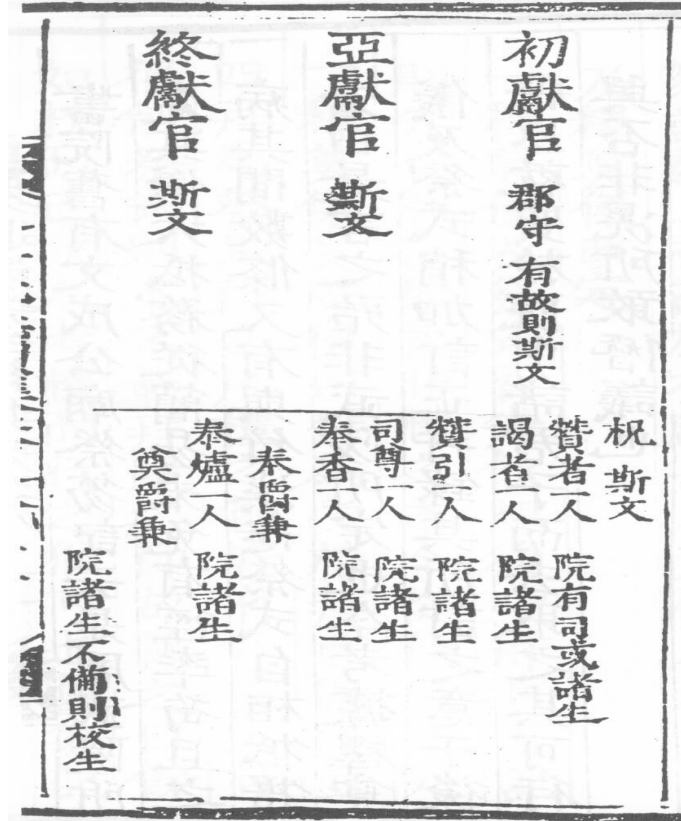 初獻官 郡守 有故則斯文
亞獻官 斯文
終獻官 斯文
祝 斯文
贊者一人 院有司或諸生
謁者一人 院諸生
贊引一人 院諸生
司尊一人 院諸生
奉香一人 院諸生
奉爵兼
奉爐一人 院諸生
奠爵兼
院諸生不備則校生